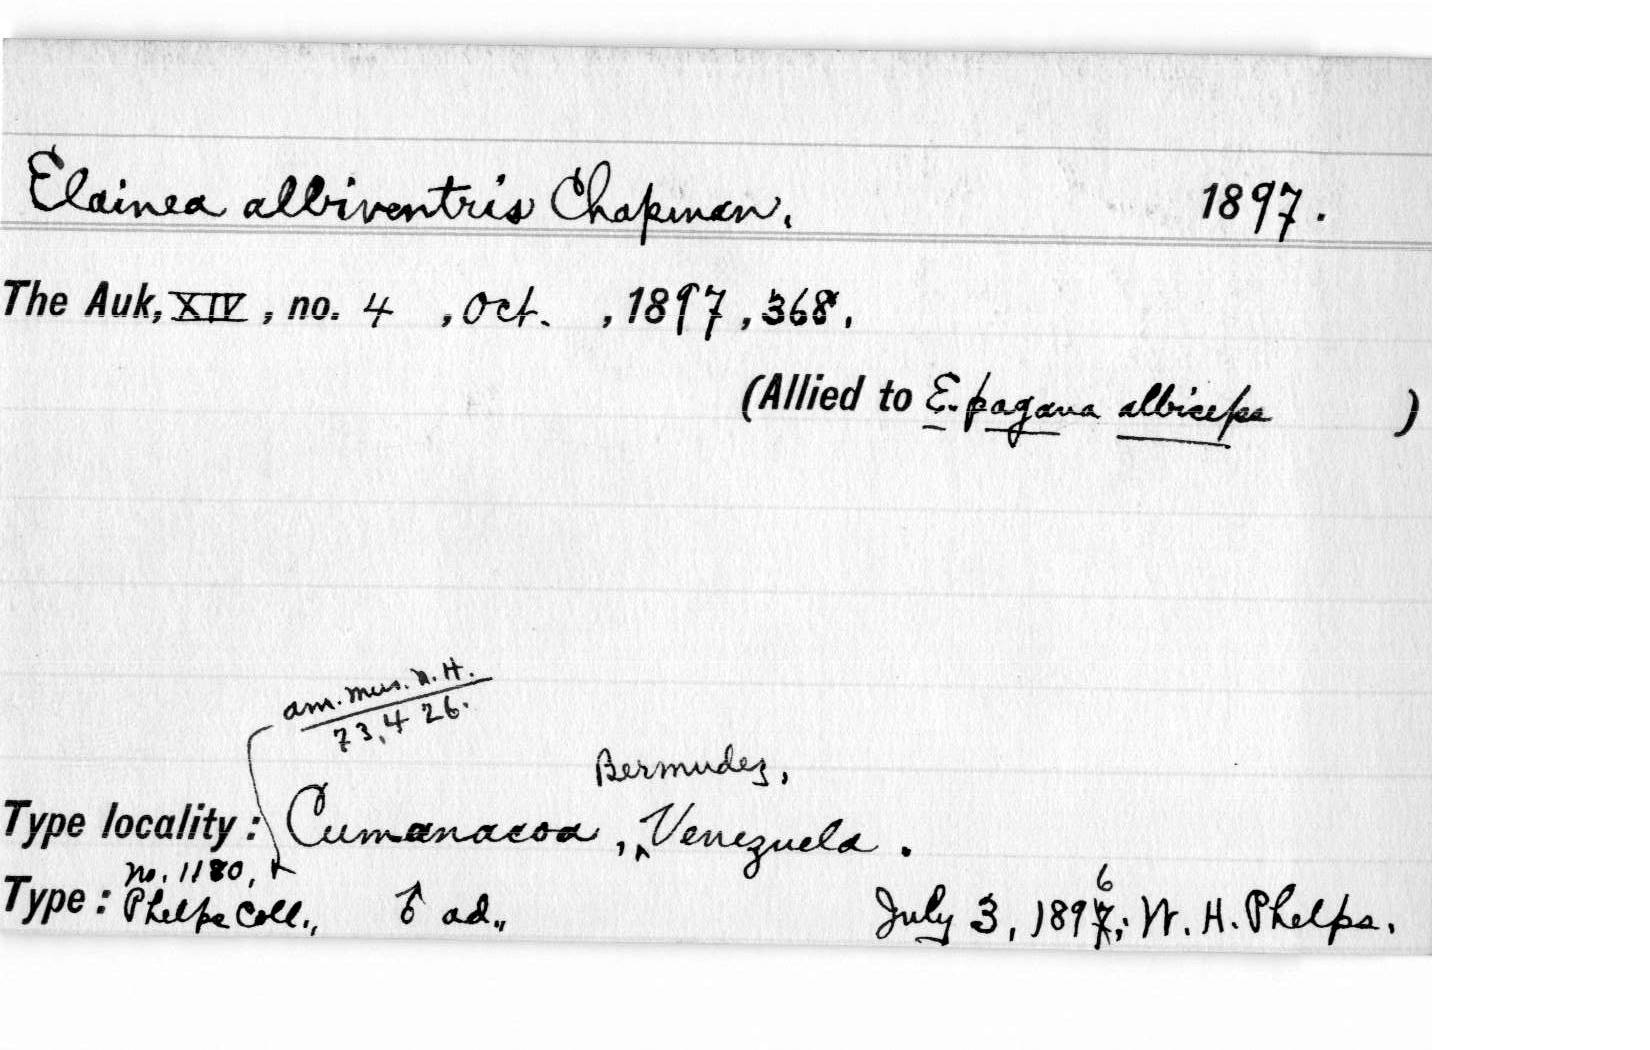 Elainea albiventris Chapman, 1897.
The Auk, XIV, no. 4, Oct., 1897, 368.
(Allied to E. pagana albiceps)
am. mus. n. H.
73,426.
Bermudez,
Type locality: Cumanacoa, ^ Venezuela.
no. 1180,
6
Type: Phelps Coll., ♂ ad., July 3, 1897; W. H. Phelps.